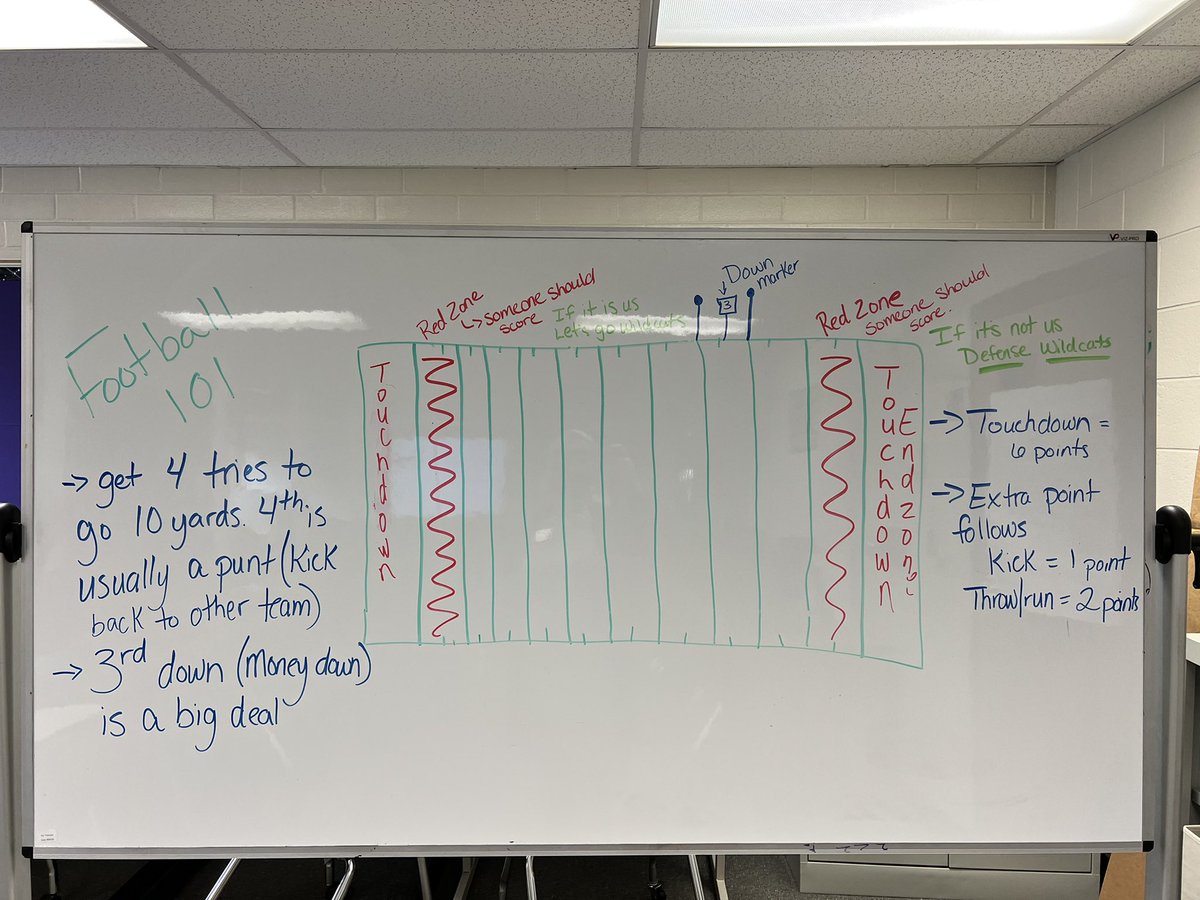 VIZ-PRO
Football
101
→ get 4 tries to
go 10 yards. 4th is
usually a punt (Kick
back to other team)
→ 3rd down (Money down)
is a big deal
Red Zone
↳ someone should
score
If it is us
Let's go Wildcats
Down
marker
3
Red Zone
someone should
score.
If it's not us
Defense Wildcats
Touchdown
Touchdown
Endzone
→ Touchdown =
6 points
→ Extra point
follows
Kick = 1 point
Throw/run = 2 points